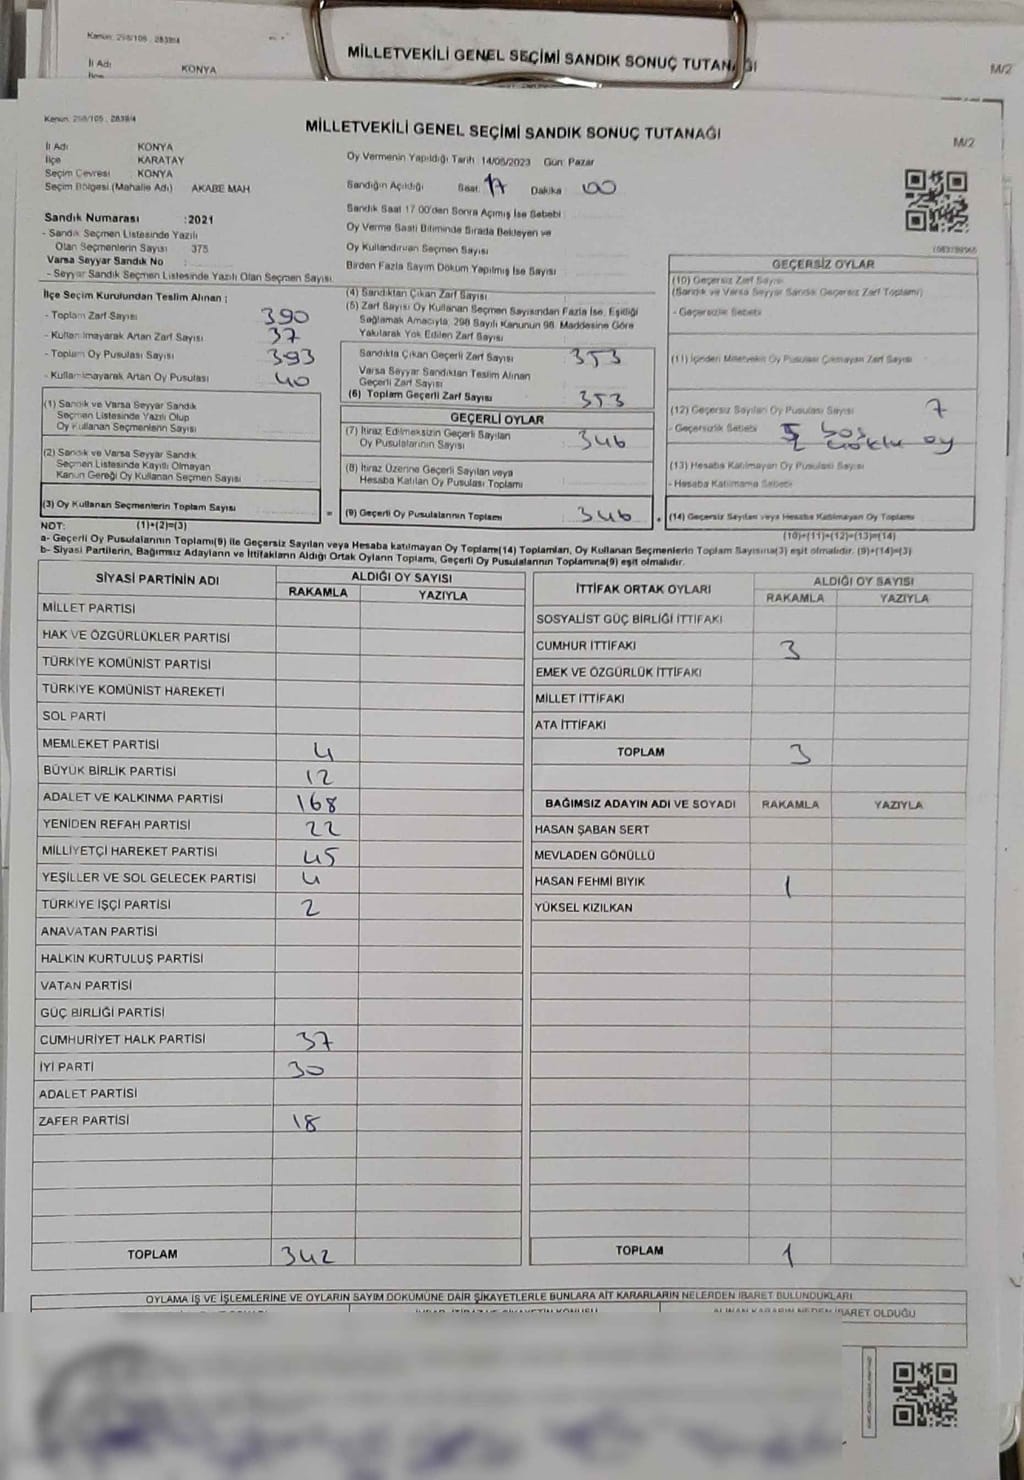 Kanun: 298/105 , 2839/4
MİLLETVEKİLİ GENEL SEÇİMİ SANDIK SONUÇ TUTANAĞI
M/2
İl Adı KONYA
İlçe
Kanun: 298/105 , 2839/4
MİLLETVEKİLİ GENEL SEÇİMİ SANDIK SONUÇ TUTANAĞI
M/2
İl Adı : KONYA
İlçe : KARATAY
Seçim Çevresi : KONYA
Seçim Bölgesi (Mahalle Adı) AKABE MAH
Oy Vermenin Yapıldığı Tarih :14/05/2023 Gün: Pazar
Sandığın Açıldığı Saat: 17 Dakika : 00
Sandık Saat 17:00'den Sonra Açılmış İse Sebebi :
Oy Verme Saati Bitiminde Sırada Bekleyen ve
Oy Kullandırılan Seçmen Sayısı
Birden Fazla Sayım Döküm Yapılmış İse Sayısı
Sandık Numarası :2021
- Sandık Seçmen Listesinde Yazılı
Olan Seçmenlerin Sayısı 375
Varsa Seyyar Sandık No :
- Seyyar Sandık Seçmen Listesinde Yazılı Olan Seçmen Sayısı
İlçe Seçim Kurulundan Teslim Alınan ;
- Toplam Zarf Sayısı : 390
- Kullanılmayarak Artan Zarf Sayısı : 37
- Toplam Oy Pusulası Sayısı : 393
- Kullanılmayarak Artan Oy Pusulası : 40
(1) Sandık ve Varsa Seyyar Sandık
Seçmen Listesinde Yazılı Olup
Oy Kullanan Seçmenlerin Sayısı
(2) Sandık ve Varsa Seyyar Sandık
Seçmen Listesinde Kayıtlı Olmayan
Kanun Gereği Oy Kullanan Seçmen Sayısı
(3) Oy Kullanan Seçmenlerin Toplam Sayısı =
(4) Sandıktan Çıkan Zarf Sayısı
(5) Zarf Sayısı Oy Kullanan Seçmen Sayısından Fazla İse, Eşitliği
Sağlamak Amacıyla, 298 Sayılı Kanunun 98. Maddesine Göre
Yakılarak Yok Edilen Zarf Sayısı
Sandıkta Çıkan Geçerli Zarf Sayısı : 353
Varsa Seyyar Sandıktan Teslim Alınan
Geçerli Zarf Sayısı
(6) Toplam Geçerli Zarf Sayısı : 353
GEÇERLİ OYLAR
(7) İtiraz Edilmeksizin Geçerli Sayılan
Oy Pusulalarının Sayısı : 346
(8) İtiraz Üzerine Geçerli Sayılan veya
Hesaba Katılan Oy Pusulası Toplamı :
(9) Geçerli Oy Pusulalarının Toplamı : 346 +
GEÇERSİZ OYLAR
(10) Geçersiz Zarf Sayısı
(Sandık ve Varsa Seyyar Sandık Geçersiz Zarf Toplamı)
- Geçersizlik Sebebi
(11) İçinden Milletvekili Oy Pusulası Çıkmayan Zarf Sayısı
(12) Geçersiz Sayılan Oy Pusulası Sayısı : 7
- Geçersizlik Sebebi : 5 boş
2 çoklu oy
(13) Hesaba Katılmayan Oy Pusulası Sayısı
- Hesaba Katılmama Sebebi
(14) Geçersiz Sayılan veya Hesaba Katılmayan Oy Toplamı
NOT: (1)+(2)=(3) (10)+(11)+(12)+(13)=(14)
a- Geçerli Oy Pusulalarının Toplamı(9) ile Geçersiz Sayılan veya Hesaba katılmayan Oy Toplamı(14) Toplamları, Oy Kullanan Seçmenlerin Toplam Sayısına(3) eşit olmalıdır. (9)+(14)=(3)
b- Siyasi Partilerin, Bağımsız Adayların ve İttifakların Aldığı Ortak Oyların Toplamı, Geçerli Oy Pusulalarının Toplamına(9) eşit olmalıdır.
SİYASİ PARTİNİN ADI ALDIĞI OY SAYISI
RAKAMLA YAZIYLA
MİLLET PARTİSİ
HAK VE ÖZGÜRLÜKLER PARTİSİ
TÜRKİYE KOMÜNİST PARTİSİ
TÜRKİYE KOMÜNİST HAREKETİ
SOL PARTİ
MEMLEKET PARTİSİ 4
BÜYÜK BİRLİK PARTİSİ 12
ADALET VE KALKINMA PARTİSİ 168
YENİDEN REFAH PARTİSİ 22
MİLLİYETÇİ HAREKET PARTİSİ 45
YEŞİLLER VE SOL GELECEK PARTİSİ 4
TÜRKİYE İŞÇİ PARTİSİ 2
ANAVATAN PARTİSİ
HALKIN KURTULUŞ PARTİSİ
VATAN PARTİSİ
GÜÇ BİRLİĞİ PARTİSİ
CUMHURİYET HALK PARTİSİ 37
İYİ PARTİ 30
ADALET PARTİSİ
ZAFER PARTİSİ 18
TOPLAM 342
İTTİFAK ORTAK OYLARI ALDIĞI OY SAYISI
RAKAMLA YAZIYLA
SOSYALİST GÜÇ BİRLİĞİ İTTİFAKI
CUMHUR İTTİFAKI 3
EMEK VE ÖZGÜRLÜK İTTİFAKI
MİLLET İTTİFAKI
ATA İTTİFAKI
TOPLAM 3
BAĞIMSIZ ADAYIN ADI VE SOYADI RAKAMLA YAZIYLA
HASAN ŞABAN SERT
MEVLADEN GÖNÜLLÜ
HASAN FEHMİ BIYIK 1
YÜKSEL KIZILKAN
TOPLAM 1
OYLAMA İŞ VE İŞLEMLERİNE VE OYLARIN SAYIM DÖKÜMÜNE DAİR ŞİKAYETLERLE BUNLARA AİT KARARLARIN NELERDEN İBARET BULUNDUKLARI
ALINAN KARARIN NEDEN İBARET OLDUĞU